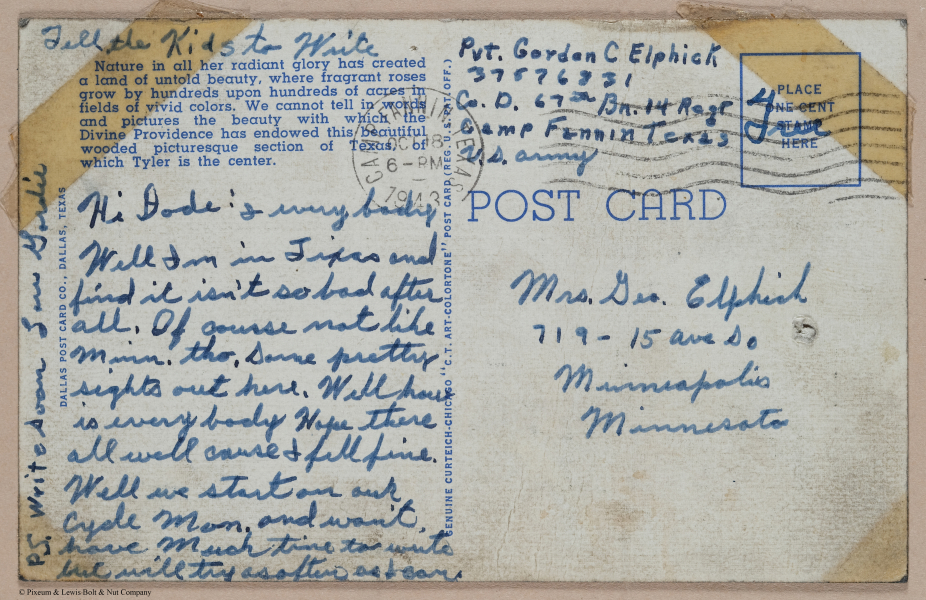 Tell the Kids to Write
Nature in all her radiant glory has created
a land of untold beauty, where fragrant roses
grow by hundreds upon hundreds of acres in
fields of vivid colors. We cannot tell in words
and pictures the beauty with which the
Divine Providence has endowed this beautiful
wooded picturesque section of Texas, of
which Tyler is the center.
Hi Dode & every body
Well I'm in Texas and
find it isn't so bad after
all. Of course not like
Minn. tho, Some pretty
sights out here. Well how
is every body Hope there
all well cause I fell fine.
Well we start on our
Cycle Mon. and won't
have Much time to write
but will try as often as I can.
PS. Write soon Gordie
DALLAS POST CARD CO., DALLAS, TEXAS
GENUINE CURTEICH-CHICAGO "C.T. ART-COLORTONE" POST CARD (REG. U.S. PAT. OFF.)
CAMP FANNIN TEXAS
OCT 18
6-PM
1943
Pvt. Gordon C Elphick
37576831
Co. D. 67th Bn. 14 Regt
Camp Fannin Texas
U.S. army
PLACE
ONE CENT
STAMP
HERE
Free
POST CARD
Mrs. Geo. Elphick
719 - 15 ave So
Minneapolis
Minnesota
© Pixeum & Lewis Bolt & Nut Company